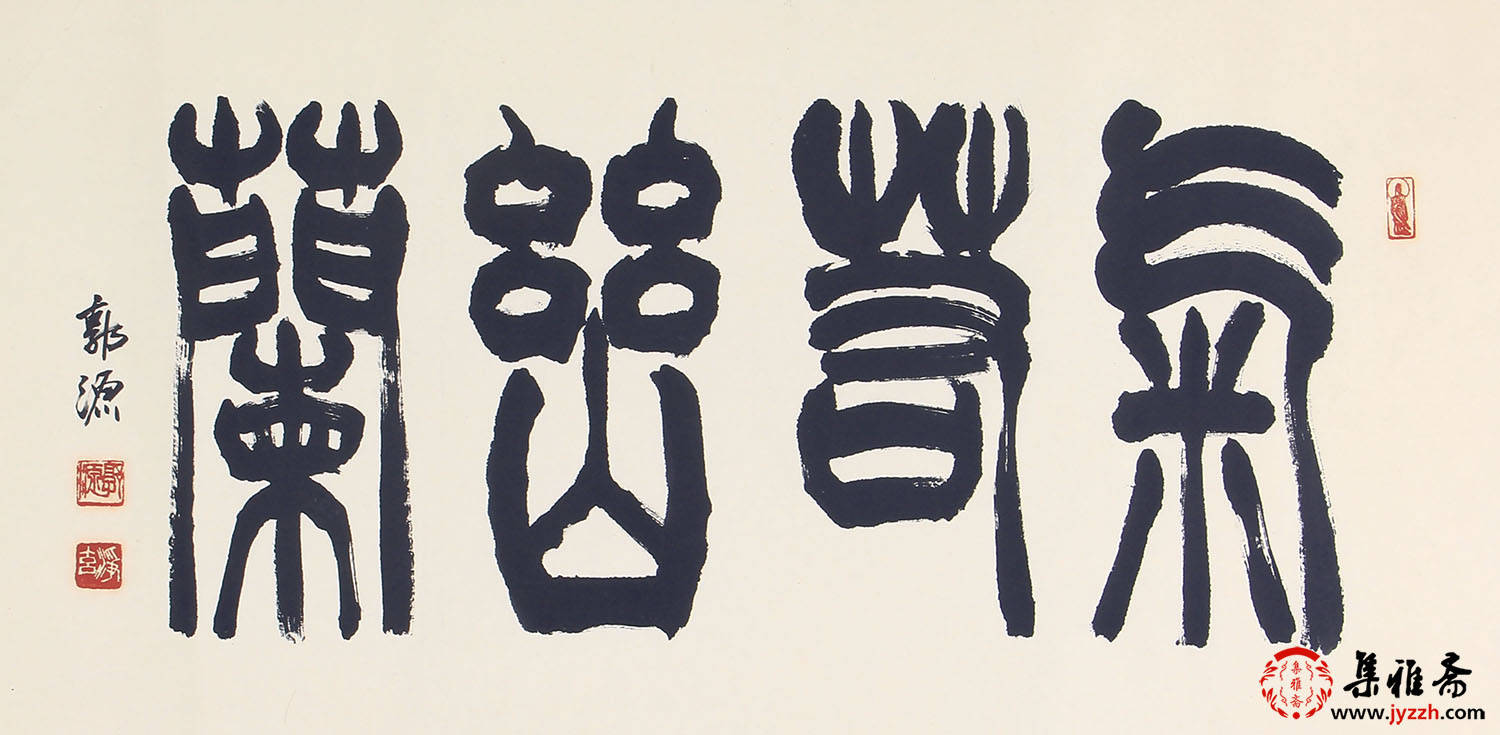 氣若幽蘭
郭源
郭源
集雅斋
集雅斋
www.jyzzh.com